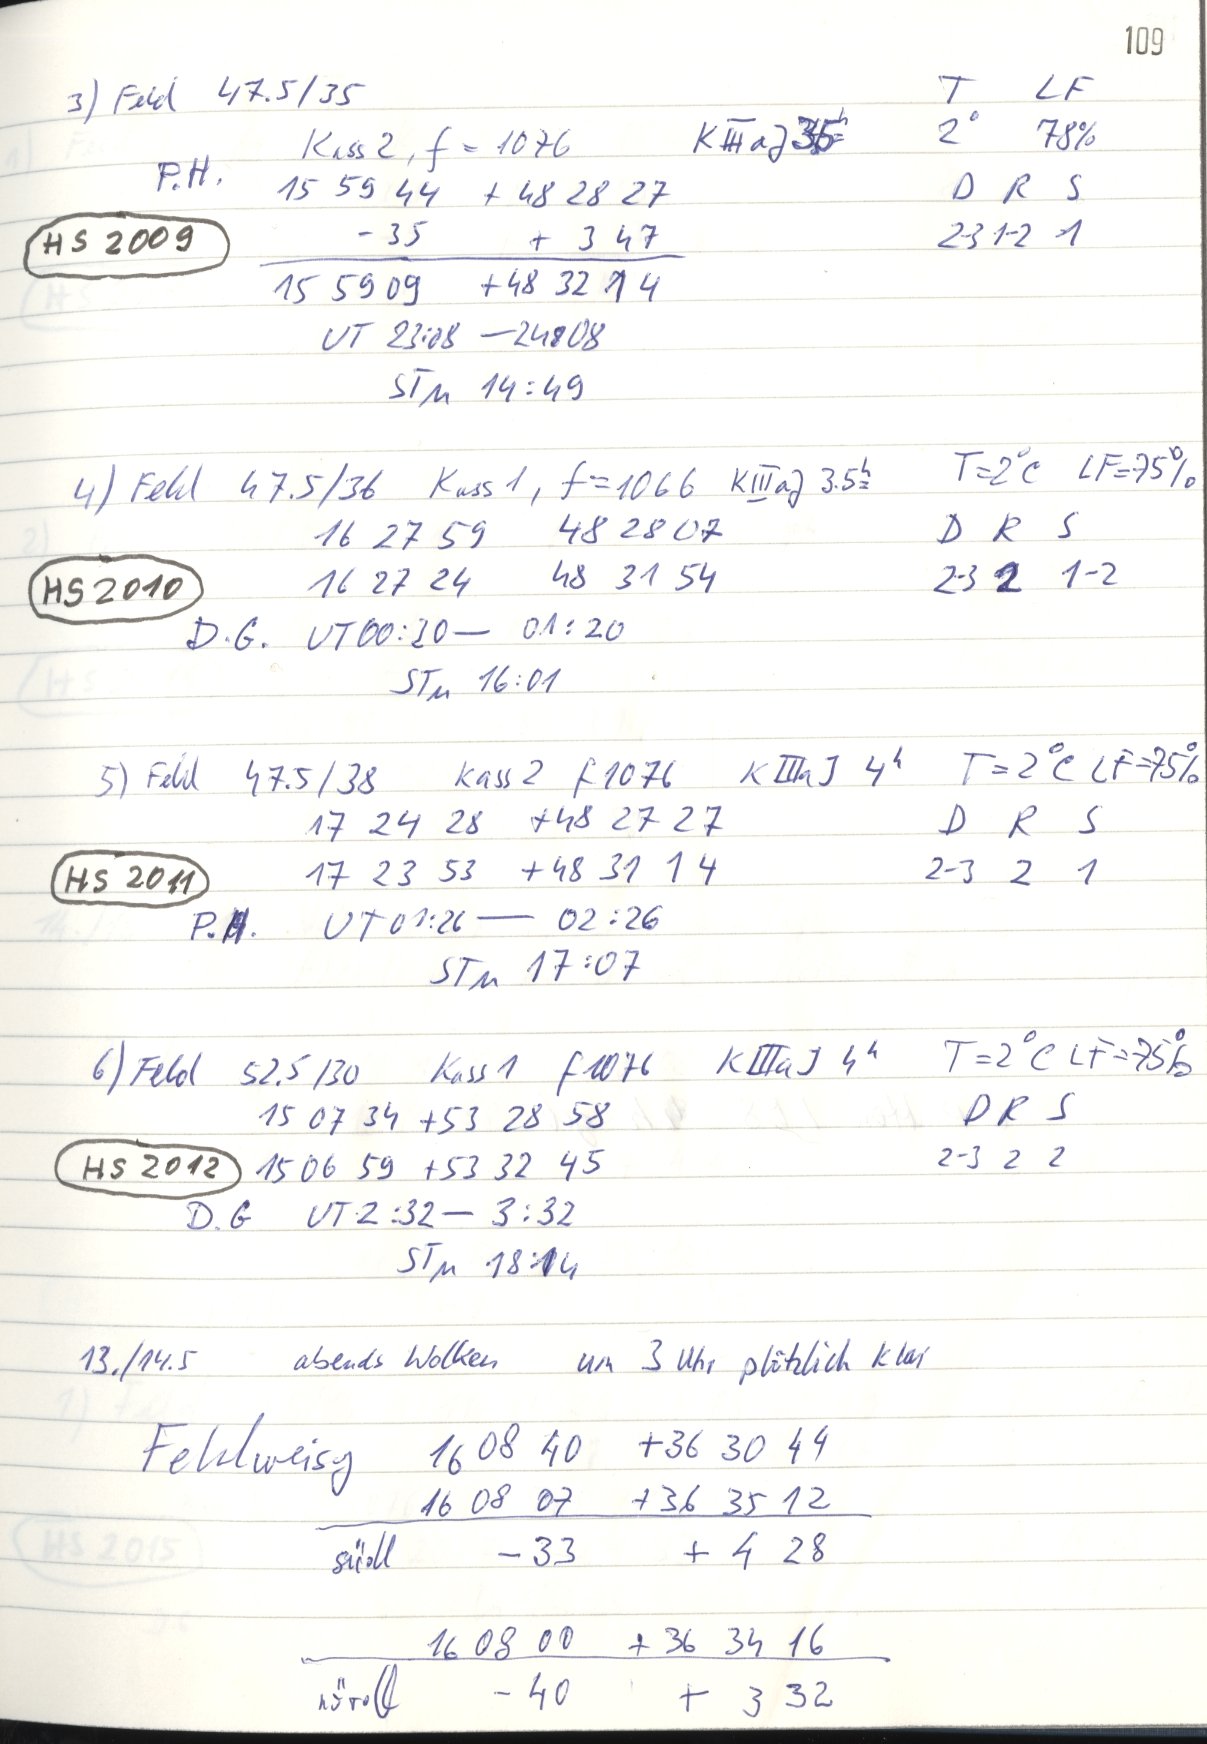 109
3) Feld 47.5/35 T LF
Kass 2, f = 1076 KIIIaJ 2° 78%
P.H. 15 59 44 + 48 28 27 D R S
HS 2009 - 35 + 3 47 2-3 1-2 1
15 59 09 +48 32 14
UT 23:08 — 24:08
STM 14:49
4) Feld 47.5/36 Kass 1, f = 1066 KIIIaJ 3.5h T=2°C LF=75%
16 27 59 48 28 07 D R S
HS 2010 16 27 24 48 31 54 2-3 2 1-2
D.G. UT 00:20 — 01:20
STM 16:01
5) Feld 47.5/38 Kass 2 f 1076 KIIIaJ 4h T=2°C LF=75%
17 24 28 +48 27 27 D R S
HS 2011 17 23 53 +48 31 14 2-3 2 1
P.H. UT 01:26 — 02:26
STM 17:07
6) Feld 52.5/30 Kass 1 f 1076 KIIIaJ 4h T=2°C LF=75%
15 07 34 +53 28 58 D R S
HS 2012 15 06 59 +53 32 45 2-3 2 2
D.G UT 2:32 — 3:32
STM 18:14
13./14.5 abends Wolken um 3 Uhr plötzlich klar
Fehlweisg 16 08 40 +36 30 44
16 08 07 +36 35 12
südl - 33 + 4 28
16 08 00 + 36 34 16
nördl - 40 + 3 32